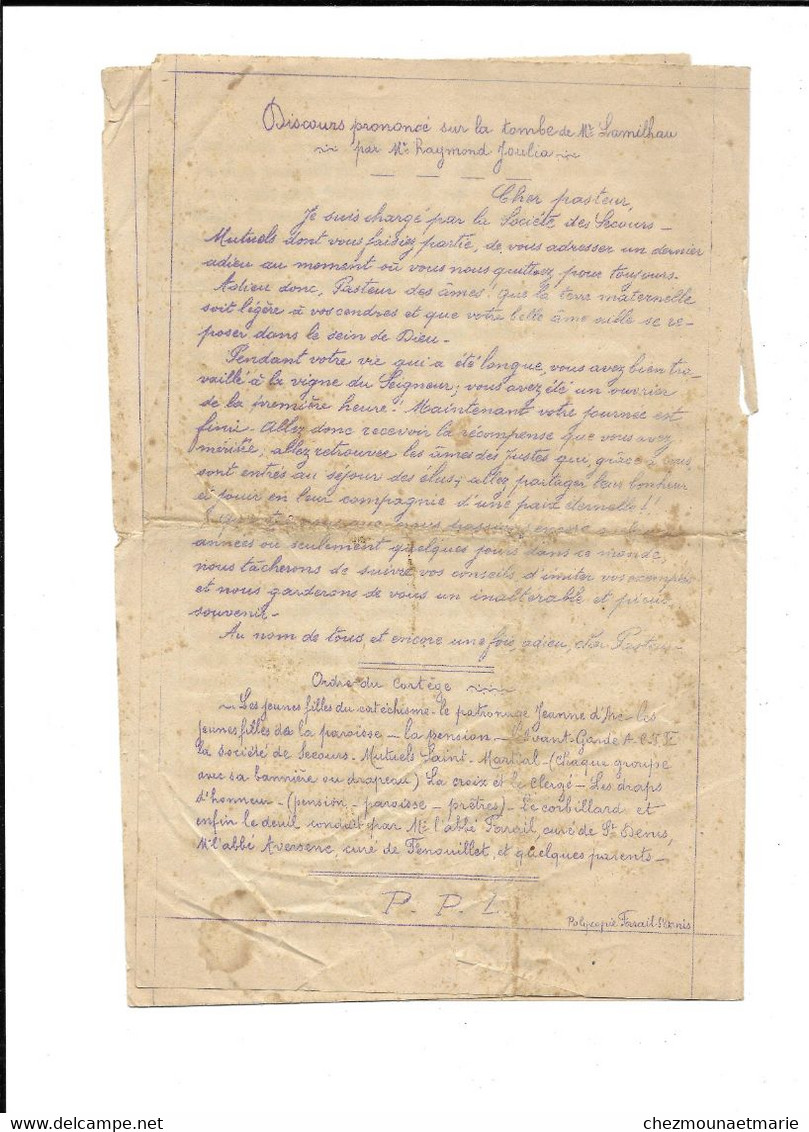 Discours prononcé sur la tombe de Mr Lamilhau
par Mr Raymond Joulia
Cher pasteur,
Je suis chargé par la Société des Secours-
Mutuels dont vous faisiez partie, de vous adresser un dernier
adieu au moment où vous nous quittez pour toujours.
Adieu donc, Pasteur des âmes! que la terre maternelle
soit légère à vos cendres et que votre belle âme aille se re-
poser dans le sein de Dieu.
Pendant votre vie qui a été longue, vous avez bien tra-
vaillé à la vigne du Seigneur; vous avez été un ouvrier
de la première heure! Maintenant votre journée est
finie. Allez donc recevoir la récompense que vous avez
méritée; allez retrouver les âmes des Justes qui, grâce à vous,
sont entrés au séjour des élus; allez partager leur bonheur
et jouir en leur compagnie d'une paix éternelle!!
nous encore
années ou seulement quelques jours dans ce monde,
nous tâcherons de suivre vos conseils d'imiter vos exemples
et nous garderons de vous un inaltérable et pieux
souvenir.
Au nom de tous et encore une fois, adieu, cher Pasteur.
Ordre du Cortège
Les jeunes filles du catéchisme - le patronage Jeanne d'Arc - les
jeunes filles de la paroisse - la pension - l'Avant-Garde
la société de Secours-Mutuels Saint-Martial - (Chaque groupe
avec sa bannière ou drapeau) La croix et le Clergé - Les draps
d'honneur - (pension - paroisse - prêtres) - Le corbillard et
enfin le deuil conduit par Mr l'abbé Farail, curé de St Denis,
Mr l'abbé Aversenc, curé de Fenouillet, et quelques parents -
P. P. L.
Polycopié Farail St Denis
chezmounaetmarie